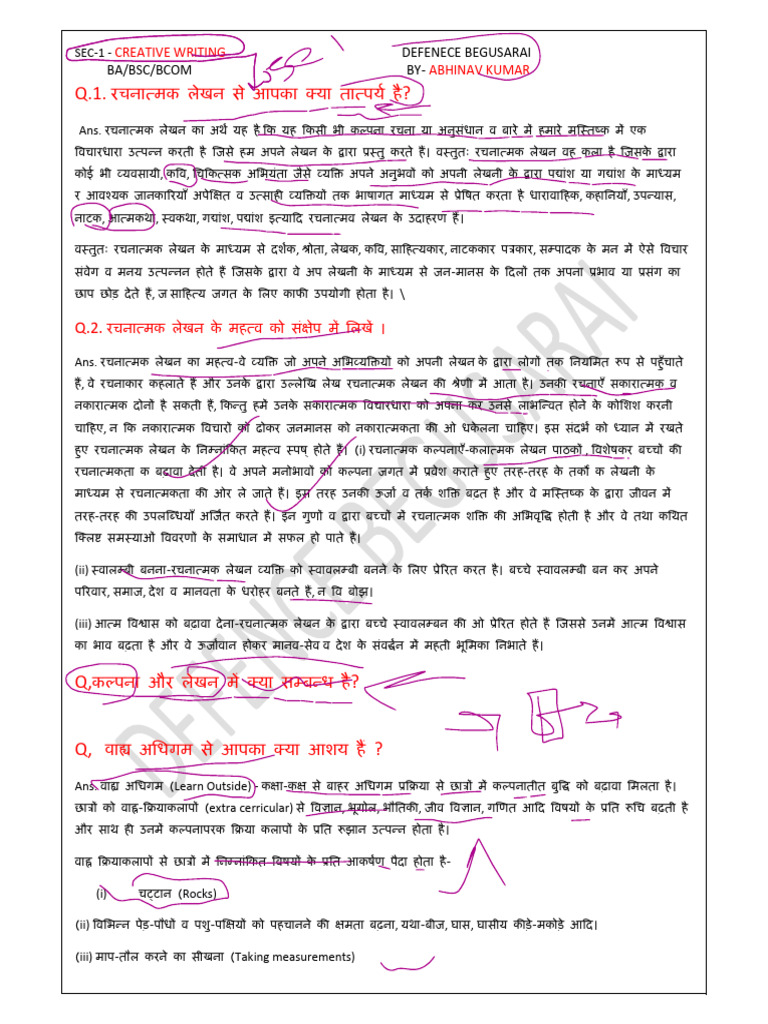 SEC-1 - CREATIVE WRITING DEFENECE BEGUSARAI
BA/BSC/BCOM BY- ABHINAV KUMAR
Q.1. रचनात्मक लेखन से आपका क्या तात्पर्य है?
Ans. रचनात्मक लेखन का अर्थ यह है.कि यह किसी भी कल्पना रचना या अनुसंधान व बारे में हमारे मस्तिष्क में एक
विचारधारा उत्पन्न करती है जिसे हम अपने लेखन के द्वारा प्रस्तु करते हैं। वस्तुतः रचनात्मक लेखन वह कला है जिसके द्वारा
कोई भी व्यवसायी, कवि, चिकित्सक अभियंता जैसे व्यक्ति अपने अनुभवों को अपनी लेखनी के द्वारा पद्यांश या गद्यांश के माध्यम
र आवश्यक जानकारियाँ अपेक्षित व उत्साही व्यक्तियों तक भाषागत माध्यम से प्रेषित करता है धारावाहिक, कहानियाँ, उपन्यास,
नाटक, आत्मकथा, स्वकथा, गद्यांश, पद्यांश इत्यादि रचनात्मव लेखन के उदाहरण हैं।
वस्तुतः रचनात्मक लेखन के माध्यम से दर्शक, श्रोता, लेखक, कवि, साहित्यकार, नाटककार पत्रकार, सम्पादक के मन में ऐसे विचार
संवेग व मनय उत्पन्नन होते हैं जिसके द्वारा वे अप लेखनी के माध्यम से जन-मानस के दिलों तक अपना प्रभाव या प्रसंग का
छाप छोड देते हैं, ज साहित्य जगत के लिए काफी उपयोगी होता है। \
Q.2. रचनात्मक लेखन के महत्व को संक्षेप में लिखें ।
Ans. रचनात्मक लेखन का महत्व-वे व्यक्ति जो अपने अभिव्यक्तियों को अपनी लेखन के द्वारा लोगों तक नियमित रुप से पहुँचाते
हैं, वे रचनाकार कहलाते हैं और उनके द्वारा उल्लेखि लेख रचनात्मक लेखन की श्रेणी में आता है। उनकी रचनाएँ सकारात्मक व
नकारात्मक दोनों है सकती हैं, किन्तु हमें उनके सकारात्मक विचारधारा को अपना कर उनसे लाभन्वित होने के कोशिश करनी
चाहिए, न कि नकारात्मक विचारों को ढोकर जनमानस को नकारात्मकता की ओ धकेलना चाहिए। इस संदर्भ को ध्यान में रखते
हुए रचनात्मक लेखन के निम्नांकित महत्व स्पष् होते हैं। (i) रचनात्मक कल्पनाएँ-कलात्मक लेखन पाठकों , विशेषकर बच्चों की
रचनात्मकता क बढ़ावा देती है। वे अपने मनोभावों को कल्पना जगत में प्रवेश कराते हुए तरह-तरह के तर्को क लेखनी के
माध्यम से रचनात्मकता की ओर ले जाते हैं। इस तरह उनकी ऊर्जा व तर्क शक्ति बढत है और वे मस्तिष्क के द्वारा जीवन में
तरह-तरह की उपलब्धियाँ अर्जित करते हैं। इन गुणो व द्वारा बच्चों में रचनात्मक शक्ति की अभिवृद्धि होती है और वे तथा कथित
क्लिष्ट समस्याओ विवरणो के समाधान में सफल हो पाते हैं।
(ii) स्वालम्बी बनना-रचनात्मक लेखन व्यक्ति को स्वावलम्बी बनने के लिए प्रेरित करत है। बच्चे स्वावलम्बी बन कर अपने
परिवार, समाज, देश व मानवता के धरोहर बनते है, न वि बोझ।
(iii) आत्म विश्वास को बढ़ावा देना-रचनात्मक लेखन के द्वारा बच्चे स्वावलम्बन की ओ प्रेरित होते हैं जिससे उनमें आत्म विश्वास
का भाव बढता है और वे ऊर्जावान होकर मानव-सेव व देश के संवर्द्धन में महती भूमिका निभाते हैं।
Q,कल्पना और लेखन में क्या सम्बन्ध है?
Q, वाह्य अधिगम से आपका क्या आशय हैं ?
Ans. वाह्य अधिगम (Learn Outside) - कक्षा-कक्ष से बाहर अधिगम प्रक्रिया से छात्रों में कल्पनातीत बुद्धि को बढावा मिलता है।
छात्रों को वाह्न-क्रियाकलापों (extra cerricular) से विज्ञान, भूगोल, भौतिकी, जीव विज्ञान, गणित आदि विषयों के प्रति रुचि बढ़ती है
और साथ ही उनमें कल्पनापरक क्रिया कलापों के प्रति रुझान उत्पन्न होता है।
वाह्न क्रियाकलापों से छात्रो में निम्नांकित विषयों के प्रति आकर्षण पैदा होता है-
(i) चट्टान (Rocks)
(ii) विभिन्न पेड़-पौधों व पशु-पक्षियों को पहचानने की क्षमता बढना, यथा-बीज, घास, घासीय कीड़े-मकोड़े आदि।
(iii) माप-तौल करने का सीखना (Taking measurements)
DEFENCE BEGUSARAI